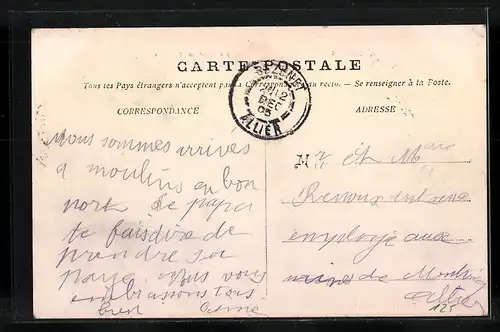 CARTE POSTALE
Tous les Pays étrangers n'acceptent pas la Correspondance au recto. — Se renseigner à la Poste.
CORRESPONDANCE
ADRESSE
BEZENET
12
DEC
05
ALLIER
Nous sommes arrives
a moulins en bon
port le papa
te fais dire de
prendre sa
paye. Nous vous
embrassons tous
bien
Mr et Mme
Renoux
employe aux
mines de
Allier
125